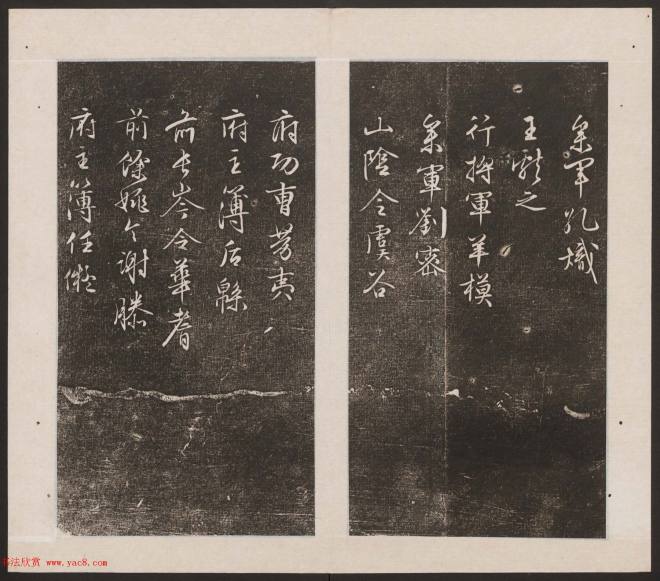 參軍孔熾
王獻之
行將軍羊模
參軍劉密
山陰令虞谷
府功曹勞夷
府主簿后緜
前長岑令華耆
前餘姚令謝滕
府主簿任儗
书法欣赏 www.yac8.com